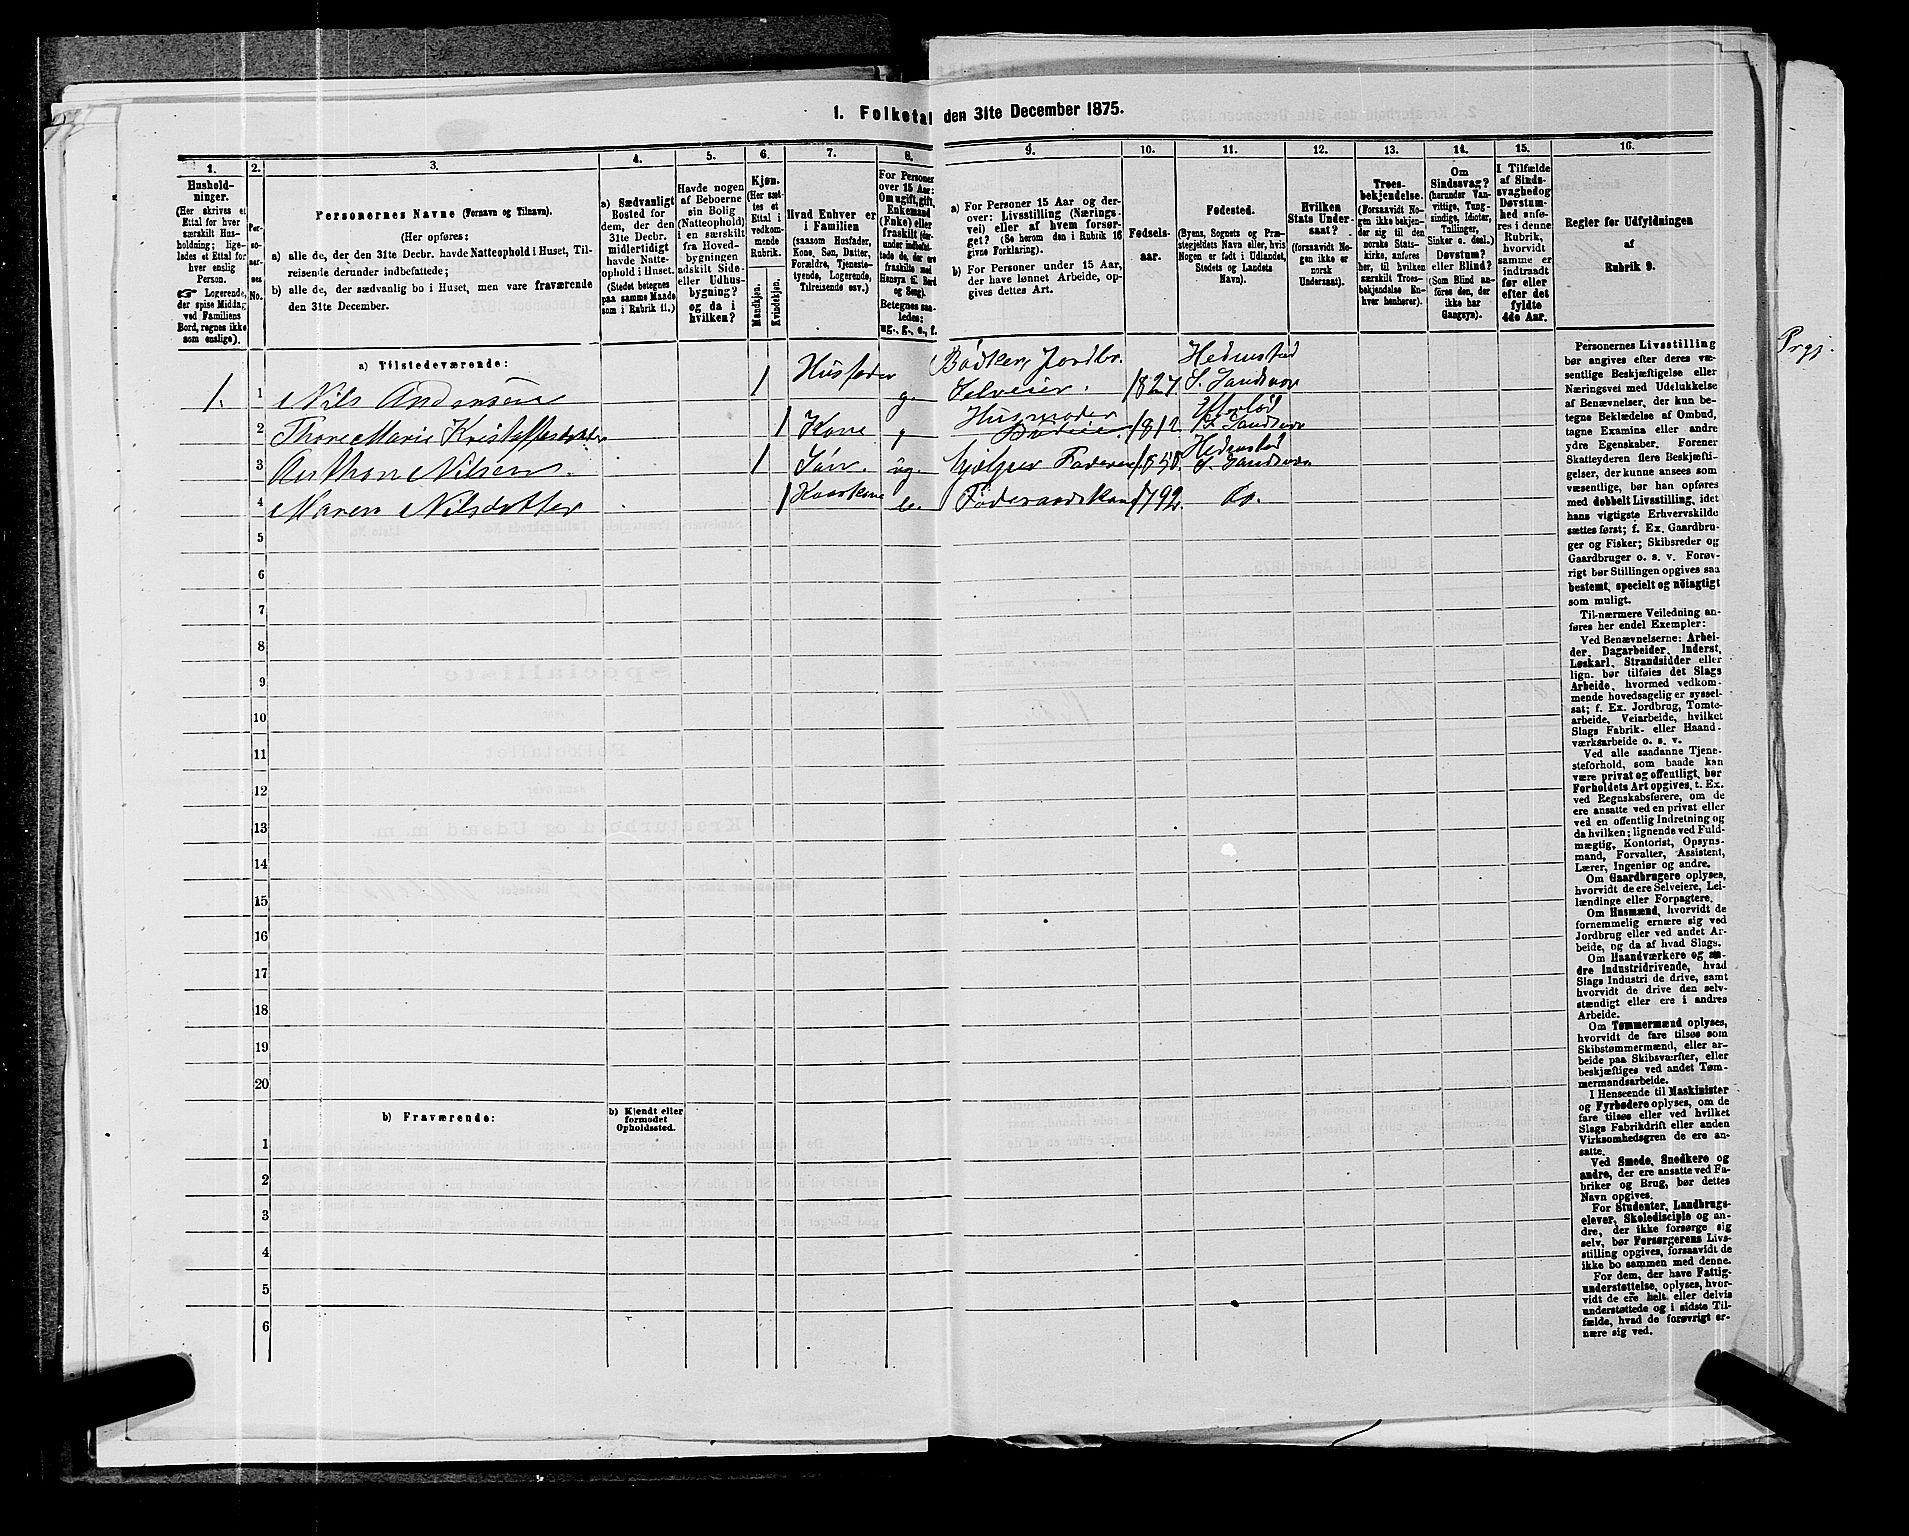 1. Folketal den 31te December 1875.
1.
Husholdninger.
(Her skrives et Ettal for hver særskilt Husholdning; ligeledes et Ettal for hver enslig Person.
☞ Logerende, der spise Middag ved Familiens Bord, regnes ikke som enslige).
2.
Personernes No.
3.
Personernes Navne (Fornavn og Tilnavn).
(Her opføres:
a) alle de, der den 31te Decbr. havde Natteophold i Huset, Tilreisende derunder indbefattede;
b) alle de, der sædvanlig bo i Huset, men vare fraværende den 31te December.
4.
a) Sædvanligt Bosted for dem, der den 31te Decbr. midlertidigt havde Natteophold i Huset. (Stedet betegnes paa samme Maade som i Rubrik 11.)
5.
Havde nogen af Beboerne sin Bolig (Natteophold) i en særskilt fra Hovedbygningen adskilt Side- eller Udhusbygning? og da i hvilken?
6.
Kjøn.
(Her sættes et Ettal i vedkommende Rubrik.
Mandkjøn.
Kvindekjøn.
7.
Hvad Enhver er i Familien
(saasom Husfader, Kone, Søn, Datter, Forældre, Tjenestetyende, Logerende, Tilreisende osv.)
8.
For Personer over 15 Aar: Om ugift, gift, Enkemand (Enke) eller fraskilt
Betegnes saaledes: ug., g., e., f.
9.
a) For Personer 15 Aar og derover: Livsstilling (Næringsvei) eller af hvem forsørget? (Se herom den i Rubrik 16 givne Forklaring).
b) For Personer under 15 Aar, der have lønnet Arbeide, opgives dettes Art.
10.
Fødselsaar.
11.
Fødested.
(Byens, Sognets og Præstegjeldets Navn eller, hvis Nogen er født i Udlandet, Stedets og Landets Navn).
12.
Hvilken Stats Undersaat?
(forsaavidt Nogen ikke er norsk Undersaat).
13.
Troesbekjendelse.
(Forsaavidt Nogen ikke bekjender sig til den norske Statskirke, anføres her, til hvilken særskilt Troesbekjendelse Enhver henhører).
14.
Om Sindssvag? (herunder Vanvittige, Tungsindige, Idioter, Tullinger, Sinker o. desl.) Døvstum? eller Blind? (Som Blind anføres den, der ikke har Gangsyn).
15.
I Tilfælde af Sindssvaghed og Døvstumhed anføres i denne Rubrik, hvorvidt samme er indtraadt før eller efter det fyldte 4de Aar.
16.
Regler for Udfyldningen
af
Rubrik 9.
a) Tilstedeværende:
1. 1 Nils Andersen 1 Husfader g. Bødker, Jordbr. Selveier. 1827. Hedenstad S. Sandsvær
2 Thore Marie Kristoffersdatter 1 Kone g Husmoder 1812 Eftelød S. Sandsvær
3 Anthon Nilsen. 1 Søn. ug. hjælper Faderen 1850. Hedenstad S. Sandsvær
4 Maren Nilsdatter 1 e. Føderaadskone 1792. do.
5
6
7
8
9
10
11
12
13
14
15
16
17
18
19
20
b) Fraværende:
b) Kjendt eller formodet Opholdssted.
1
2
3
4
5
6
Personernes Livsstilling
bør angives efter deres væ-
sentlige Beskjæftigelse eller
Næringsvei med Udelukkelse
af Benævnelser, der kun be-
tegne Beklædelse af Ombud,
tagne Examina eller andre
ydre Egenskaber. Forener
Skatteyderen flere Beskjæfti-
gelser, der kunne ansees som
væsentlige, bør han opføres
med dobbelt Livsstilling, idet
hans vigtigste Erhvervskilde
sættes først; f. Ex. Gaardbru-
ger og Fisker; Skibsreder og
Gaardbruger o. s. v. Forøv-
rigt bør Stillingen opgives saa
bestemt, specielt og nöiagtigt
som muligt.
Til nærmere Veiledning an-
føres her endel Exempler:
Ved Benævnelserne: Arbei-
der, Dagarbeider, Inderst,
Løskarl, Strandsidder eller
lign. bør tilføies det Slags
Arbeide, hvormed vedkom-
mende hovedsagelig er syssel-
sat; f. Ex. Jordbrug, Tomte-
arbeide, Veiarbeide, hvilket
Slags Fabrik- eller Haand-
værksarbeide o. s. v.
Ved alle saadanne Tjene-
steforhold, som baade kan
være privat og offentligt, bør
Forholdets Art opgives, t. Ex.
ved Regnskabsførere, om de
ere ansatte ved en privat eller
ved en offentlig Indretning og
da hvilken; lignende ved Fuld-
mægtig, Kontorist, Opsyns-
mand, Forvalter, Assistent,
Lærer, Ingeniør og andre.
Om Gaardbrugere oplyses,
hvorvidt de ere Selveiere, Lei-
lændinge eller Forpagtere.
Om Husmænd, hvorvidt de
fornemmelig ernære sig ved
Jordbrug eller ved andet Ar-
beide, og da af hvad Slags.
Om Haandværkere og an-
dre Industridrivende, hvad
Slags Industri de drive, samt
hvorvidt de drive den selv-
stændigt eller ere i andres
Arbeide.
Om Tømmermænd oplyses,
hvorvidt de fare tilsøs som
Skibstømmermænd, eller ar-
beide paa Skibsværfter, eller
beskjæftiges ved andet Tøm-
mermandsarbeide.
I Henseende til Maskinister
og Fyrbødere oplyses, om de
fare tilsøs eller ved hvilket
Slags Fabrikdrift eller anden
Virksomhedsgren de ere an-
satte.
Ved Smede, Snedkere og
andre, der ere ansatte ved Fa-
briker og Brug, bør dettes
Navn opgives.
For Studenter, Landbrugs-
elever, Skoledisciple og an-
dre, der ikke forsørge sig
selv, bør Forsørgerens Livs-
stilling opgives, forsaavidt de
ikke bo sammen med denne.
For dem, der have Fattig-
understøttelse, oplyses, hvor-
vidt de ere helt eller delvis
understøttede og i sidste Til-
fælde, hvad de forøvrigt er-
nære sig ved.